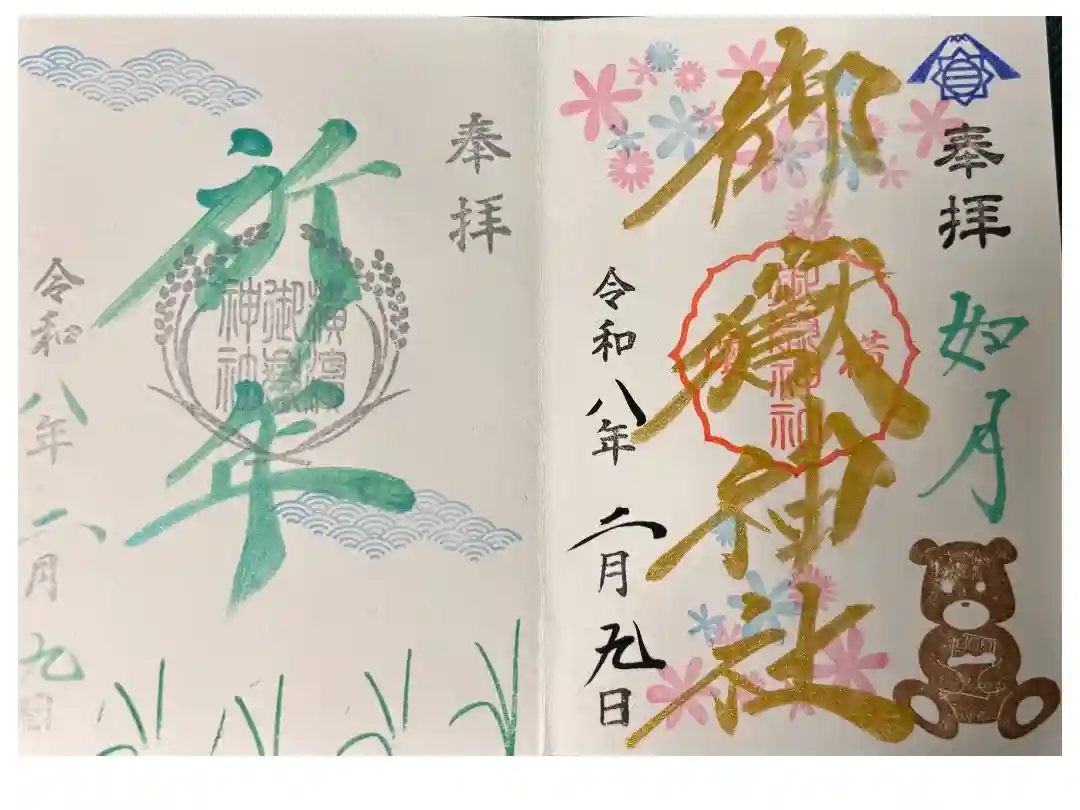 奉拝
如月
御嶽神社
横
御嶽神社
令和八年二月九日
奉拝
祈年
横濱
御嶽
神社
令和八年二月九日